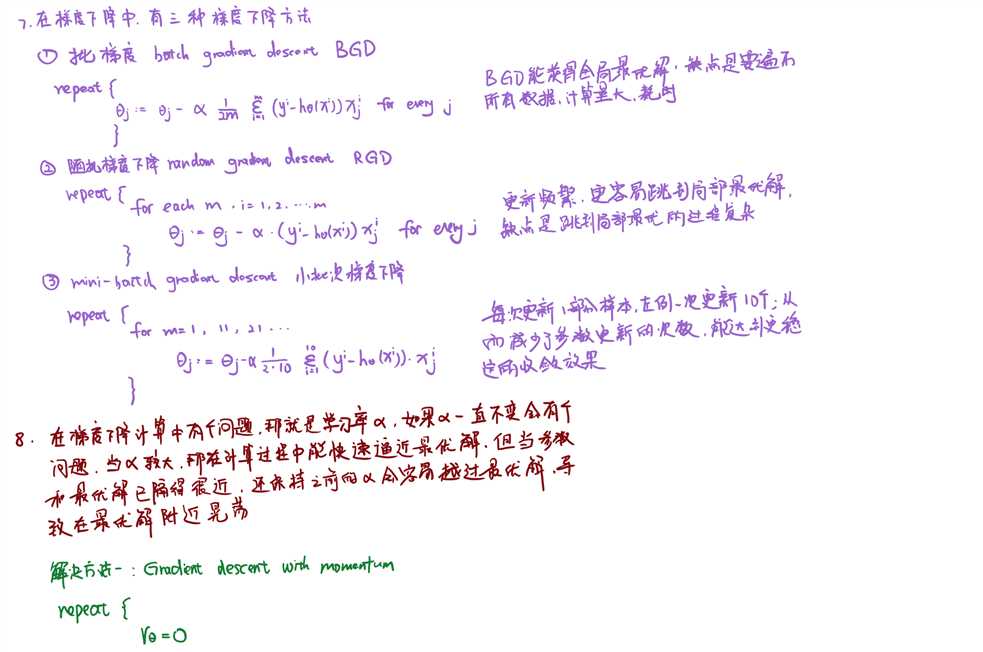 7. 在梯度下降中, 有三种梯度下降方法
① 批梯度 batch gradient descent BGD
repeat {
θj := θj - α 1/2m Σ(i=1 to m) (yⁱ - hθ(xⁱ)) xjⁱ for every j
}
BGD能获得全局最优解, 缺点是要遍历
所有数据, 计算量大, 耗时
② 随机梯度下降 random gradien descent RGD
repeat {
for each m, i=1,2.....m
θj := θj - α·(yⁱ - hθ(xⁱ)) xjⁱ for every j
}
更新频繁, 更容易跳到局部最优解,
缺点是跳到局部最优的过程复杂
③ mini-batch gradien descent 小批次梯度下降
repeat {
for m=1, 11, 21...
θj := θj - α 1/2·10 Σ(i=1 to 10) (yⁱ - hθ(xⁱ))·xjⁱ
}
每次更新1部分样本, 左例一次更新10个; 从
而减少了参数更新的次数, 能达到更稳
定的收敛效果
8. 在梯度下降计算中有个问题, 那就是学习率α, 如果α一直不变会有个
问题, 当α较大, 那在计算过程中能快速逼近最优解, 但当参数
和最优解已隔得很近, 还保持之前的α会容易越过最优解, 导
致在最优解附近晃荡
解决方法一: Gradient descent with momentum
repeat {
Vθ = 0